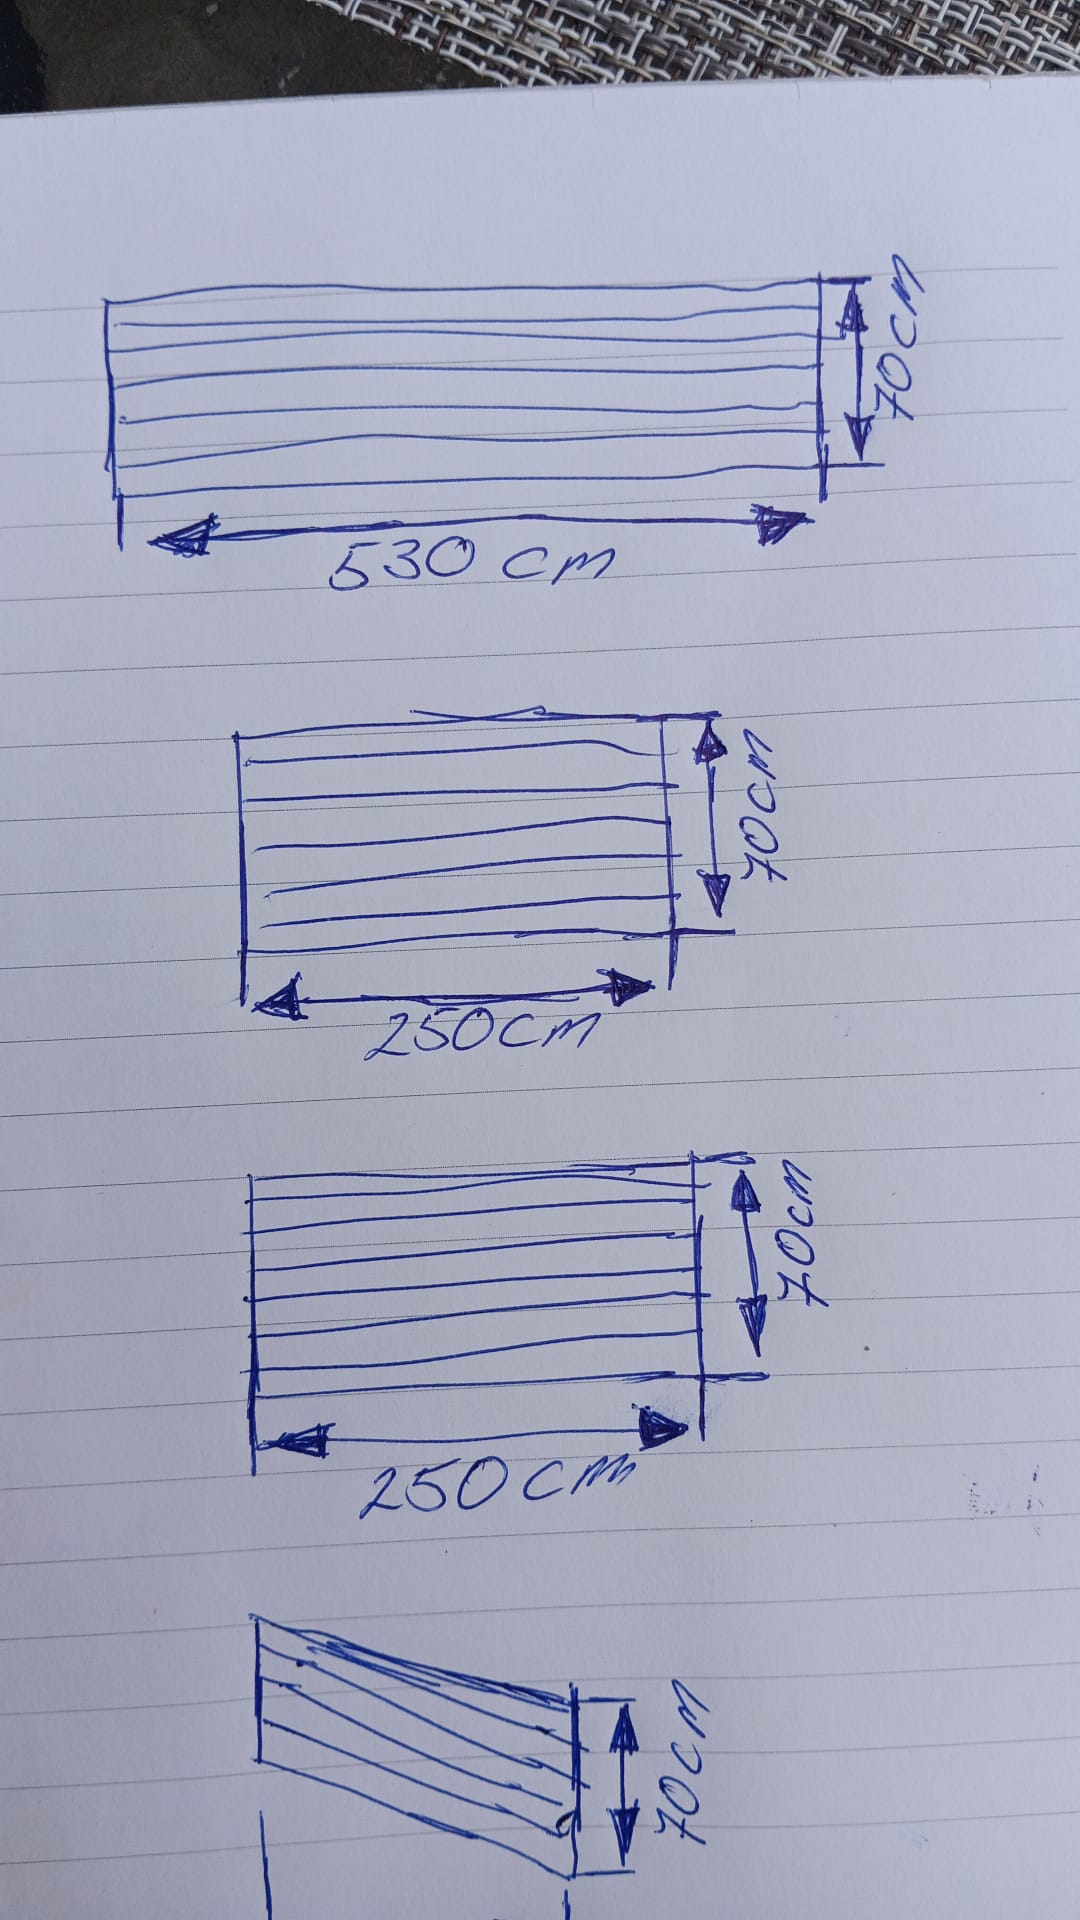 70cm
530 cm
70cm
250cm
70cm
250 cm
70cm